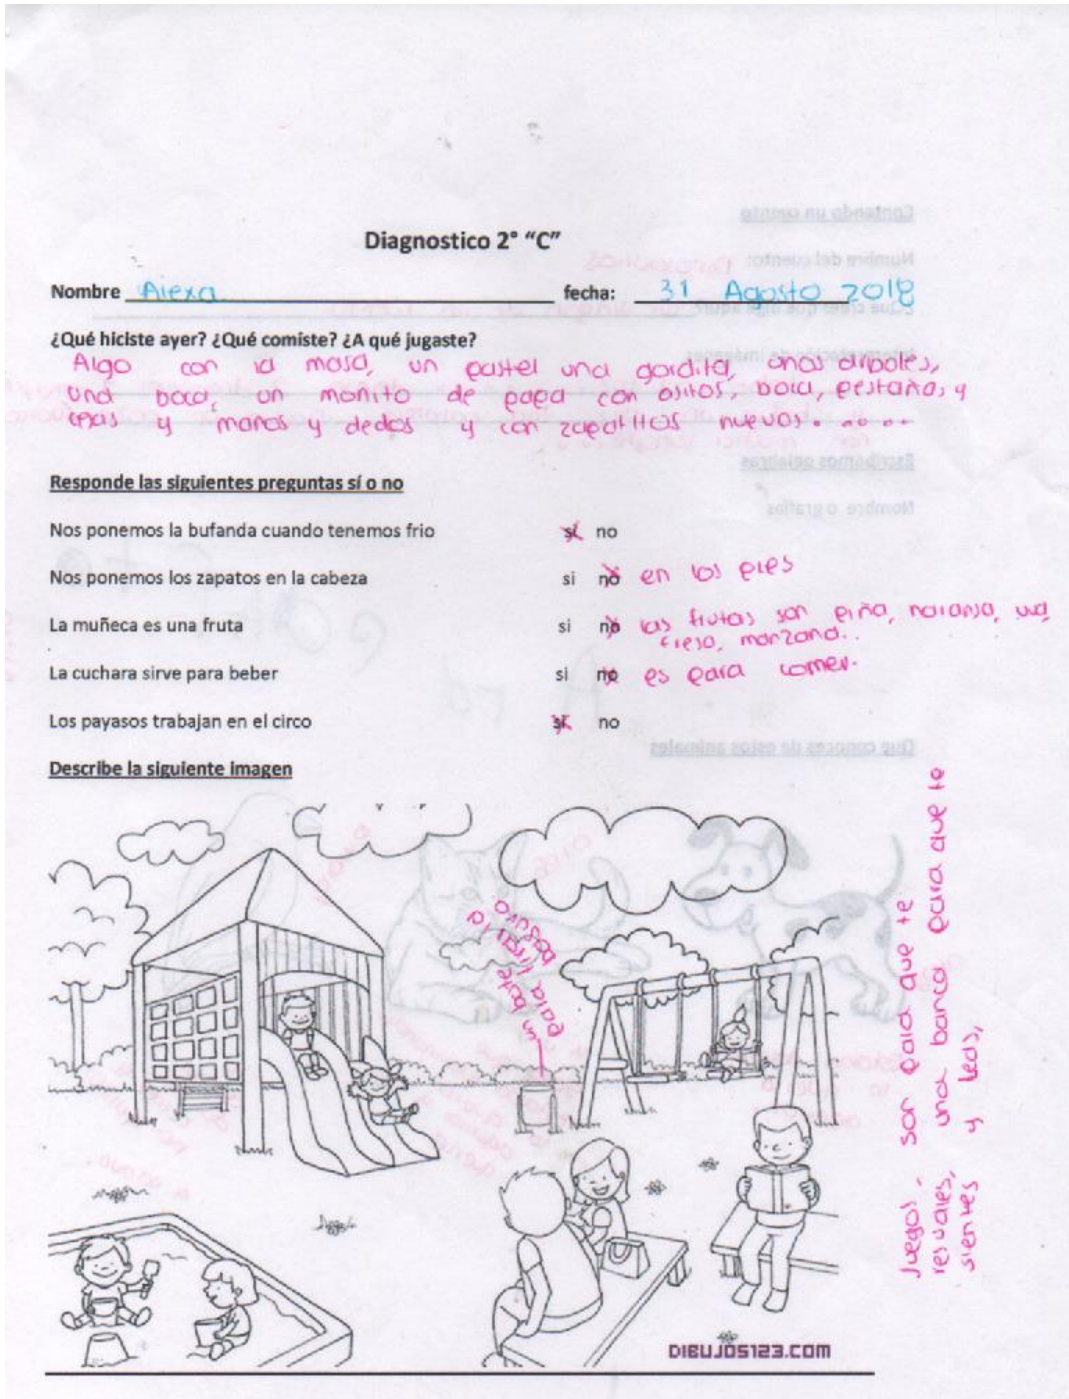 Diagnostico 2° "C"
Nombre Alexa fecha: 31 Agosto 2018
¿Qué hiciste ayer? ¿Qué comiste? ¿A qué jugaste?
Algo con la masa, un pastel una gordita, unos arboles,
una boca, un monito de papa con ositos, boca, pestañas y
cejas y manos y dedos y con zapatitos nuevos.
Responde las siguientes preguntas sí o no
Nos ponemos la bufanda cuando tenemos frio si no
Nos ponemos los zapatos en la cabeza si no en los pies
La muñeca es una fruta si no las frutas son piña, naranja, uva,
fresa, manzana..
La cuchara sirve para beber si no es para comer.
Los payasos trabajan en el circo si no
Describe la siguiente imagen
un bote
para tirar la
basura
Juegos, son para que te
resvales, una banca para que te
sientes y leas,
DIBUJOS123.COM